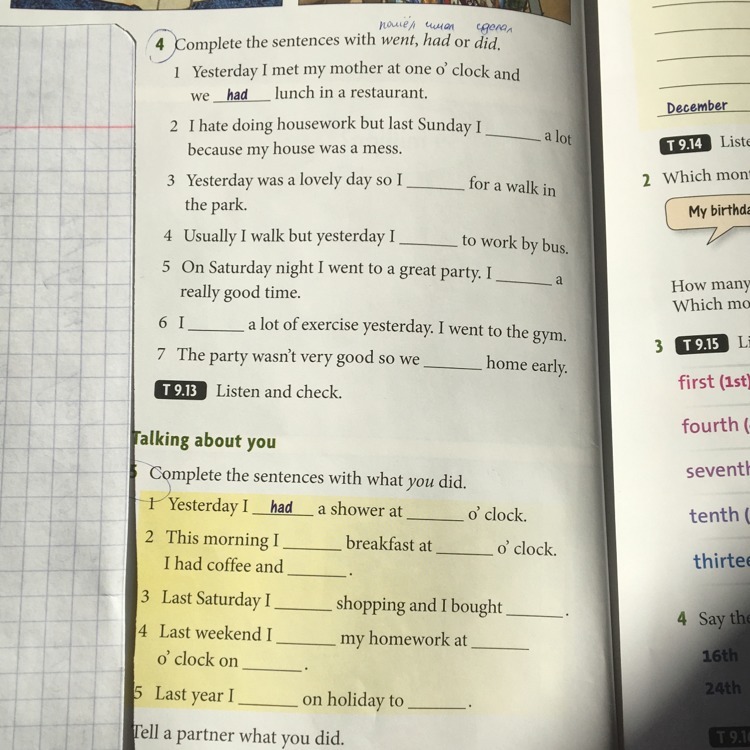 пошёл имел сделал
4 Complete the sentences with went, had or did.
1 Yesterday I met my mother at one o' clock and
we had lunch in a restaurant.
2 I hate doing housework but last Sunday I ______ a lot
because my house was a mess.
3 Yesterday was a lovely day so I ______ for a walk in
the park.
4 Usually I walk but yesterday I ______ to work by bus.
5 On Saturday night I went to a great party. I ______ a
really good time.
6 I ______ a lot of exercise yesterday. I went to the gym.
7 The party wasn't very good so we ______ home early.
T 9.13 Listen and check.
Talking about you
5 Complete the sentences with what you did.
1 Yesterday I had a shower at ______ o' clock.
2 This morning I ______ breakfast at ______ o' clock.
I had coffee and ______.
3 Last Saturday I ______ shopping and I bought ______.
4 Last weekend I ______ my homework at ______
o' clock on ______.
5 Last year I ______ on holiday to ______.
Tell a partner what you did.
December
T 9.14
2 Which
My
How many
Which
3 T 9.15
first (1st)
fourth (
seventh
tenth (
4 Say
16th
24th